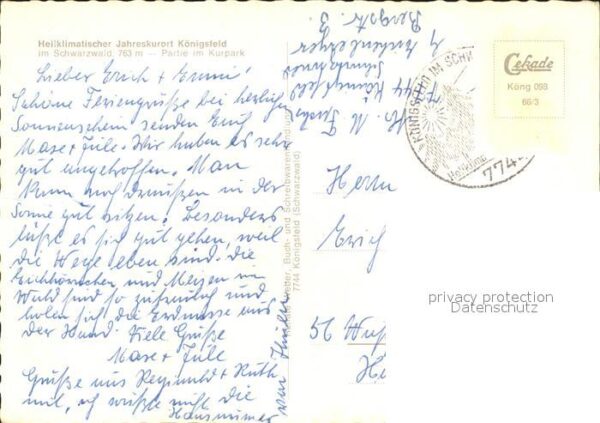 Heilklimatischer Jahreskurort Königsfeld
im Schwarzwald, 763 m — Partie im Kurpark
Lieber Erich + Emmi!
Schöne Feriengrüße bei herrlichem
Sonnenschein senden Euch
Maxe + Jule. Wir haben es sehr
gut angetroffen. Man
kann noch draußen in der
Sonne gut sitzen. Besonders
läßt es sich gut gehen, weil
die Wege eben sind. Die
Eichhörnchen und Meisen im
Wald sind so zutraulich und
holen sich die Erdnüsse aus
der Hand. Viele Grüße
Maxe + Jule
Grüße aus Reginald + Ruth
mit, ich wußte nicht die
Hausnummer
von
Buch- und Schreibwarenhandlung
7744 Königsfeld (Schwarzwald)
7744 Königsfeld
KÖNIGSFELD IM SCHW
Heilklima
774
Cekade
König 093
66/3
Herrn
Erich
56 Wup
privacy protection
Datenschutz